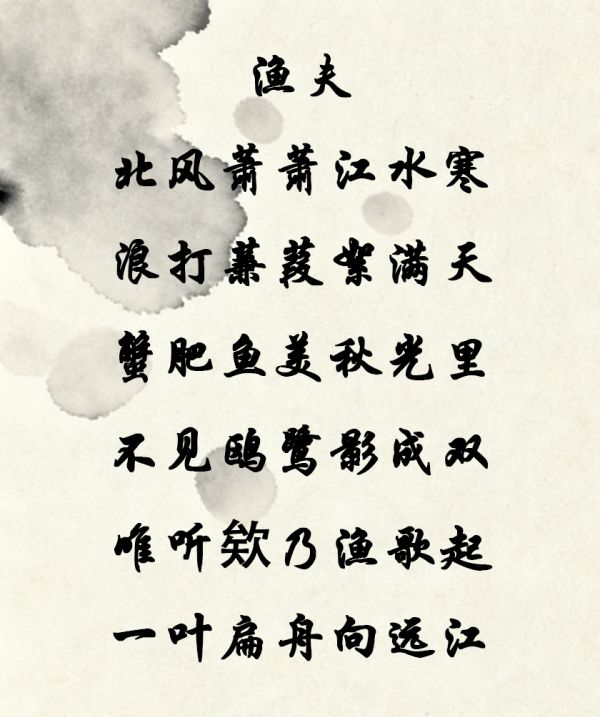 渔夫
北风萧萧江水寒
浪打蒹葭絮满天
蟹肥鱼美秋光里
不见鸥鹭影成双
唯听欸乃渔歌起
一叶扁舟向远江